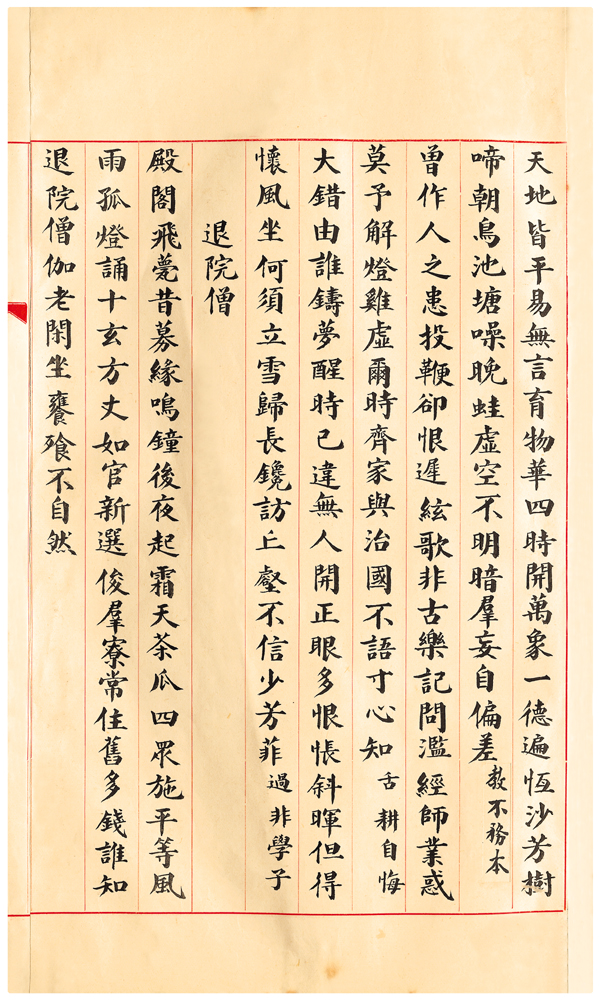 天地皆平易無言育物華四時開萬象一德遍恆沙芳樹
啼朝鳥池塘噪晚蛙虛空不明暗羣妄自偏差教不務本
曾作人之患投鞭卻恨遲絃歌非古樂記問濫經師業惑
莫予解燈雞虛爾時齊家與治國不語寸心知舌耕自悔
大錯由誰鑄夢醒時已違無人開正眼多恨悵斜暉但得
懷風坐何須立雪歸長鑱訪丘壑不信少芳菲過非學子
退院僧
殿閣飛甍昔募緣鳴鐘後夜起霜天茶瓜四眾施平等風
雨孤燈誦十玄方丈如官新選俊羣寮常住舊多錢誰知
退院僧伽老閑坐饔飱不自然